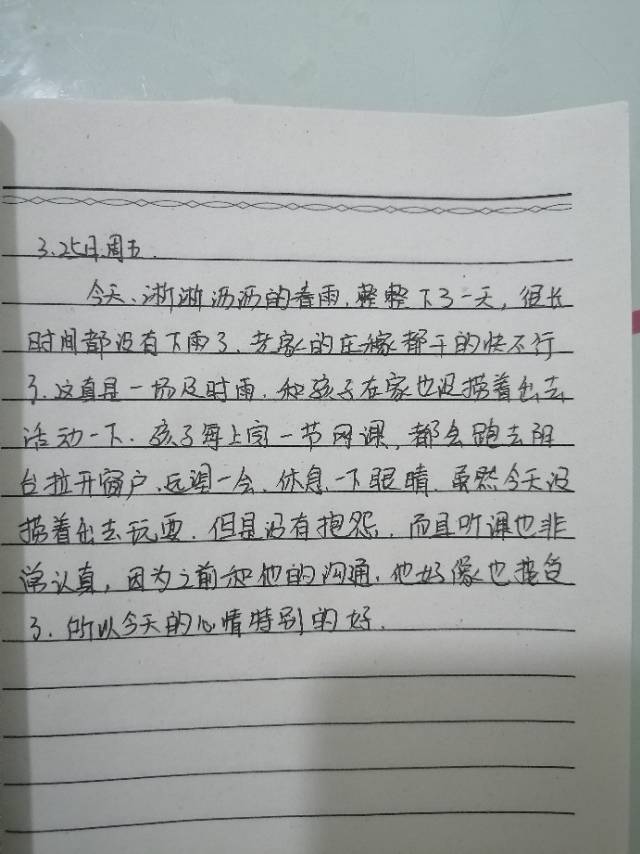 3.25日.周五.
今天、淅淅沥沥的春雨.整整下了一天,很长
时间都没有下雨了.老家的庄稼都干的快不行
了.这真是一场及时雨.和孩子在家也没捞着出去
活动一下.孩子每上完一节网课,都会跑去阳
台拉开窗户、远望一会.休息一下眼睛.虽然今天没
捞着出去玩耍.但是没有抱怨.而且听课也非
常认真,因为之前和他的沟通.他好像也接受
了.所以今天的心情特别的好.